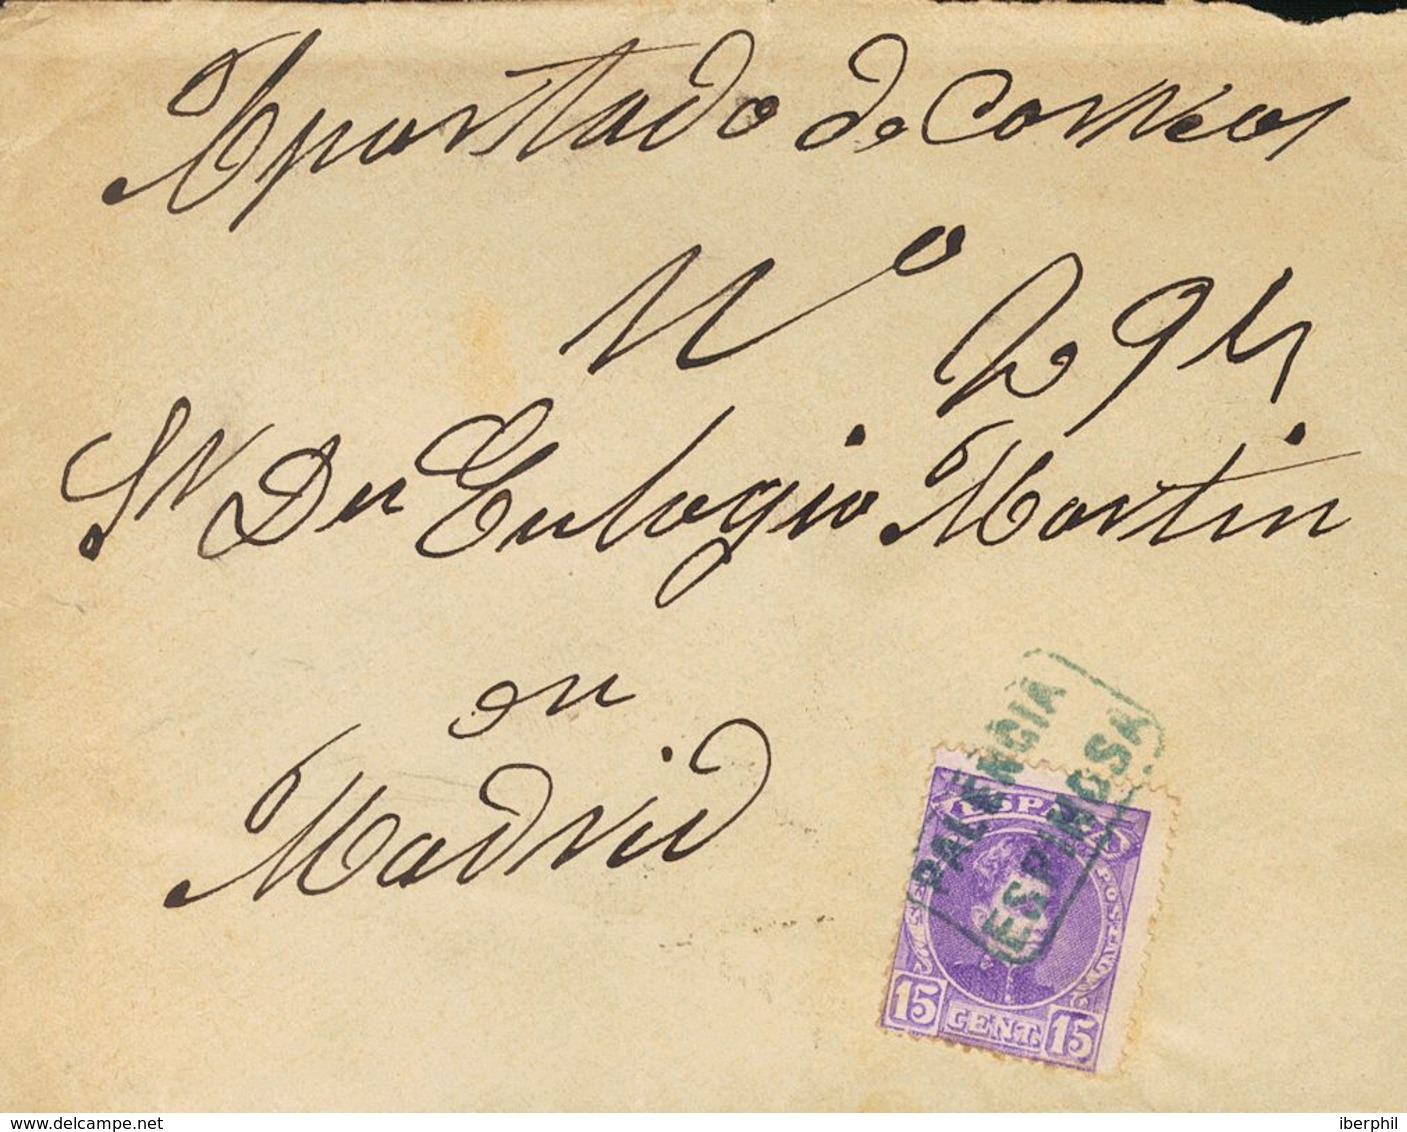 Apartado de Correos
Nº 294
Sr Dn Eulogio Martin
en
Madrid
PALENCIA
ESPINOSA
ESPAÑA
15 CENT. 15
delcampe.net
iberphil